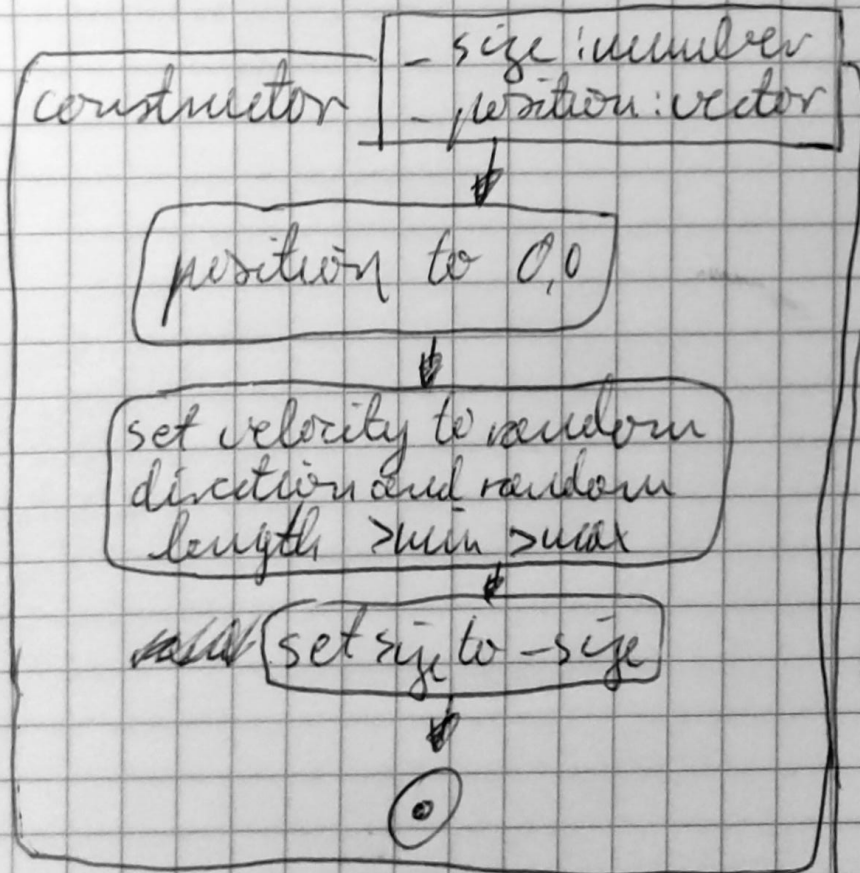 _ size : number
constructor
_ position : vector
position to 0,0
set velocity to random
direction and random
length >min >max
set size to _size